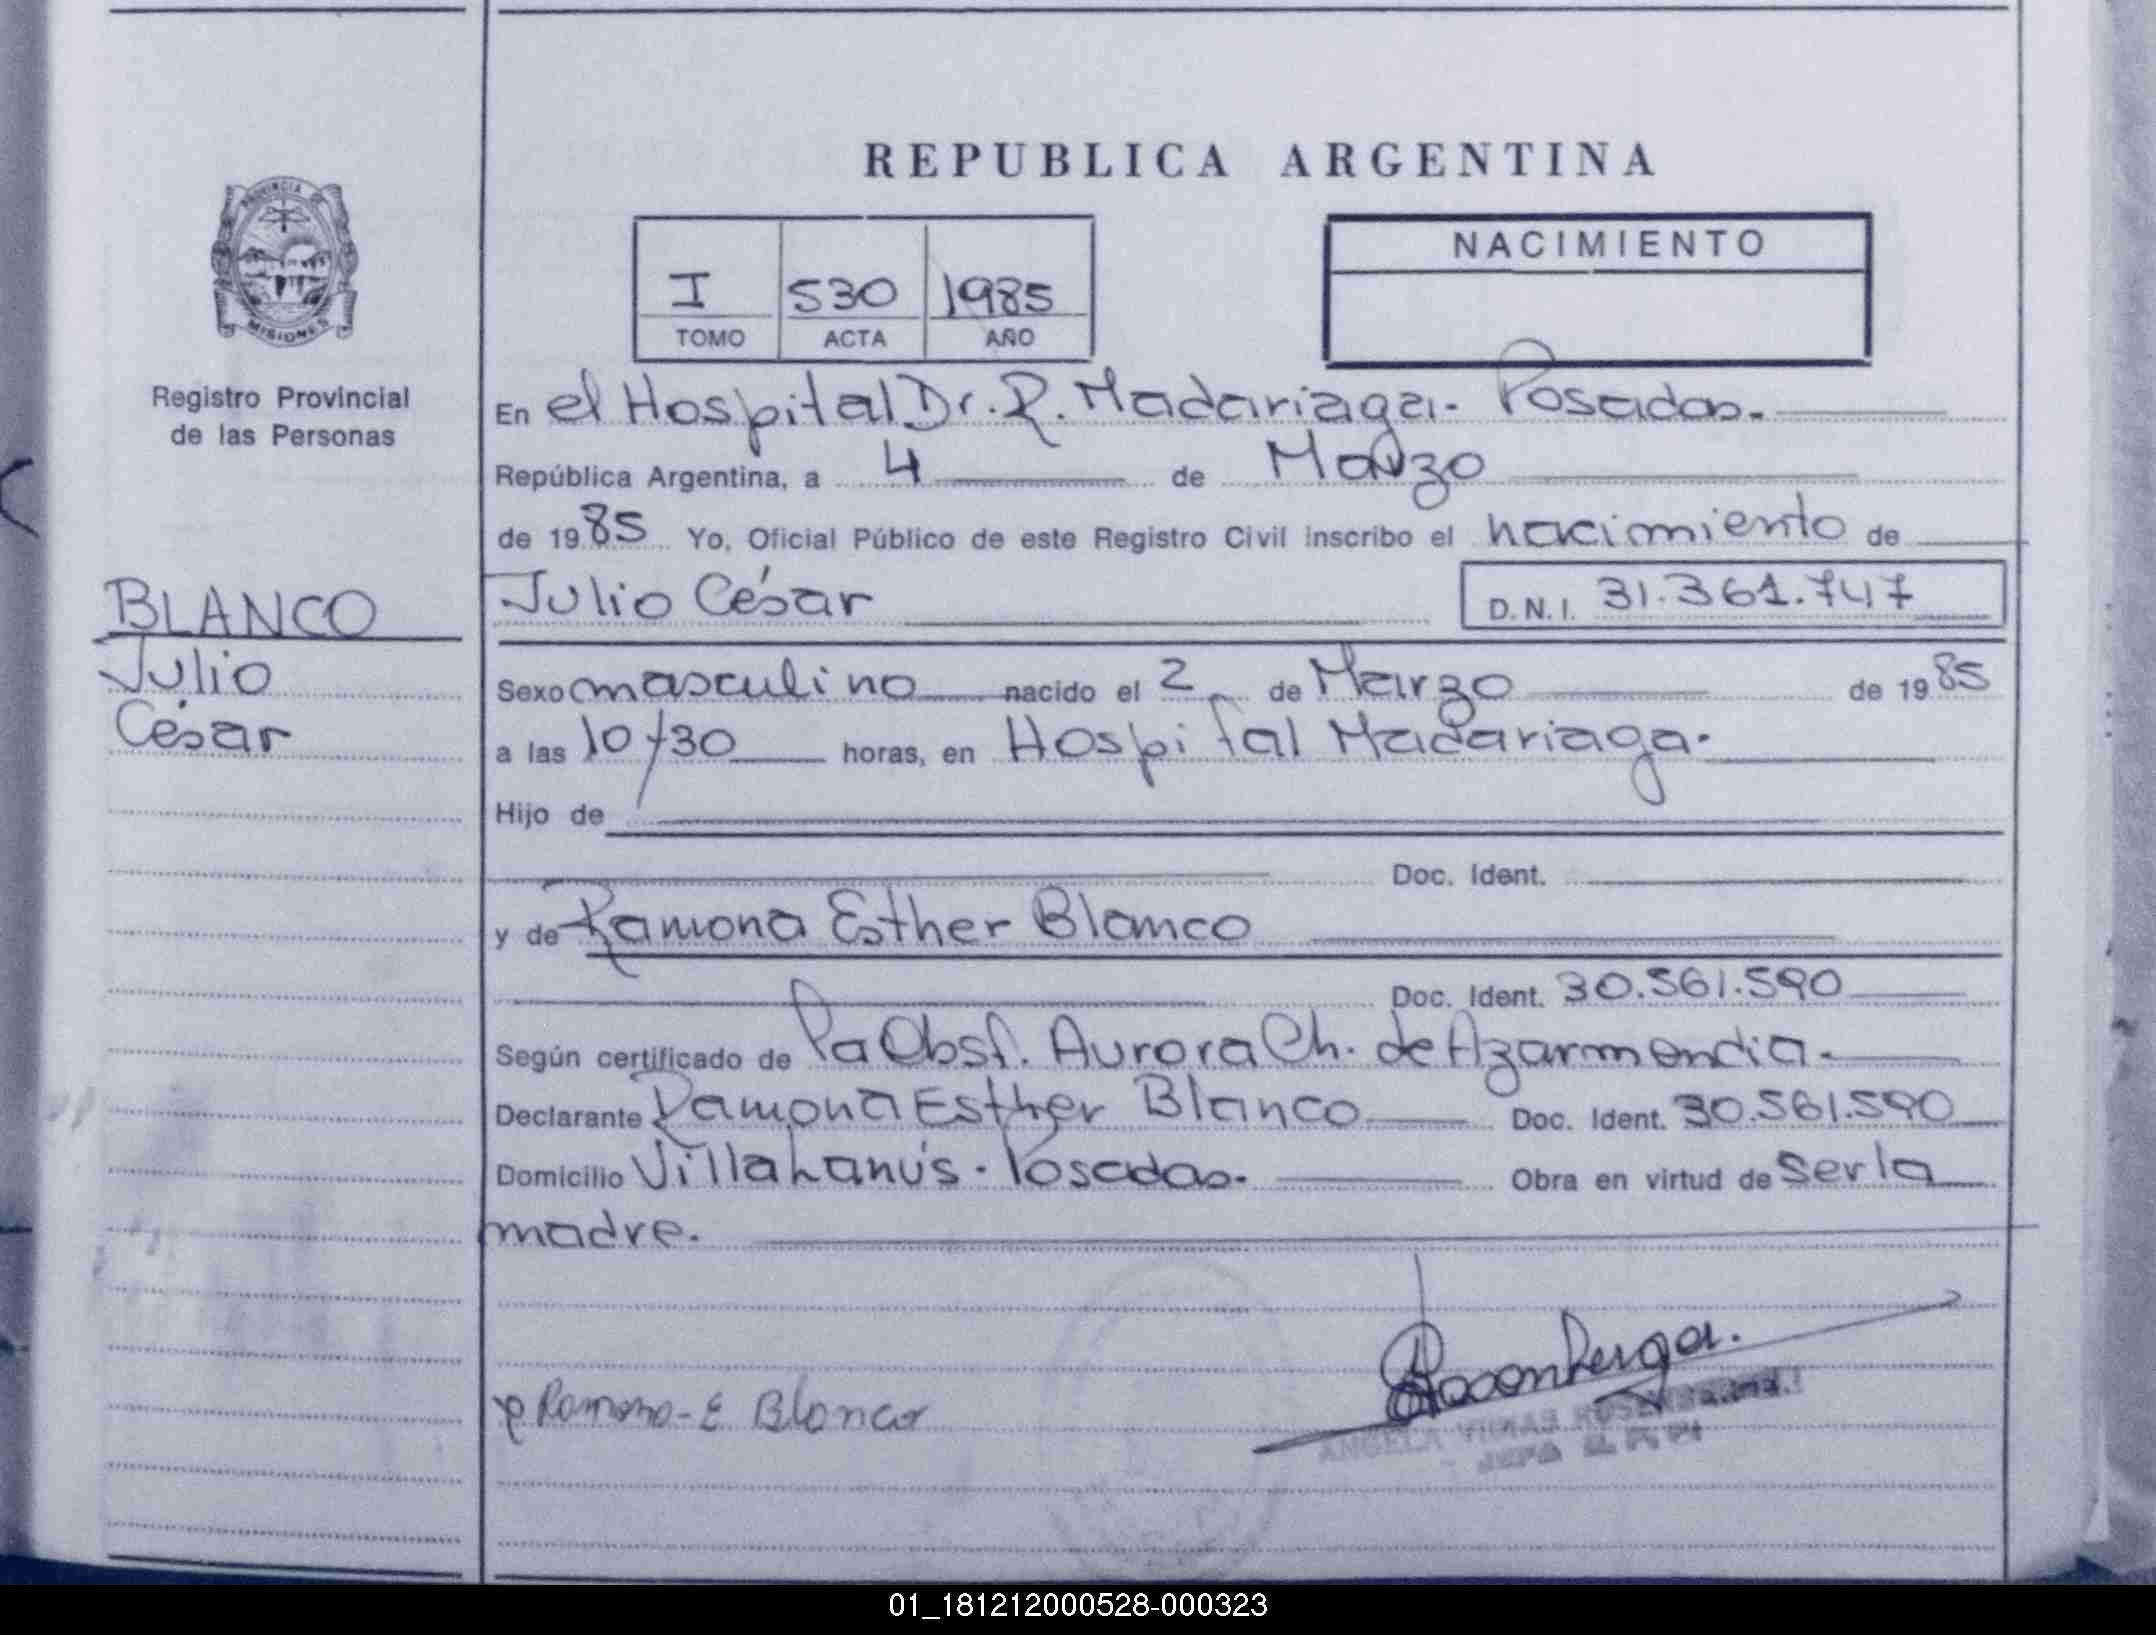 REPUBLICA ARGENTINA
PROVINCIA DE
MISIONES
Registro Provincial
de las Personas
I 530 1985
TOMO ACTA AÑO
NACIMIENTO
En el Hospital Dr. R. Madariaga. Posadas.
República Argentina, a 4 de Marzo
de 1985 Yo, Oficial Público de este Registro Civil inscribo el nacimiento de
BLANCO
Julio
César
Julio César D.N.I. 31.361.747
Sexo masculino nacido el 2 de Marzo de 1985
a las 10/30 horas, en Hospital Madariaga.
Hijo de
Doc. Ident.
y de Ramona Esther Blanco
Doc. Ident. 30.561.590
Según certificado de la Obst. Aurora Ch. de Azarmendia.
Declarante Ramona Esther Blanco Doc. Ident. 30.561.590
Domicilio Villa Lanús. Posadas. Obra en virtud de ser la
madre.
Ramona E Blanco
ANGELA
01_181212000528-000323